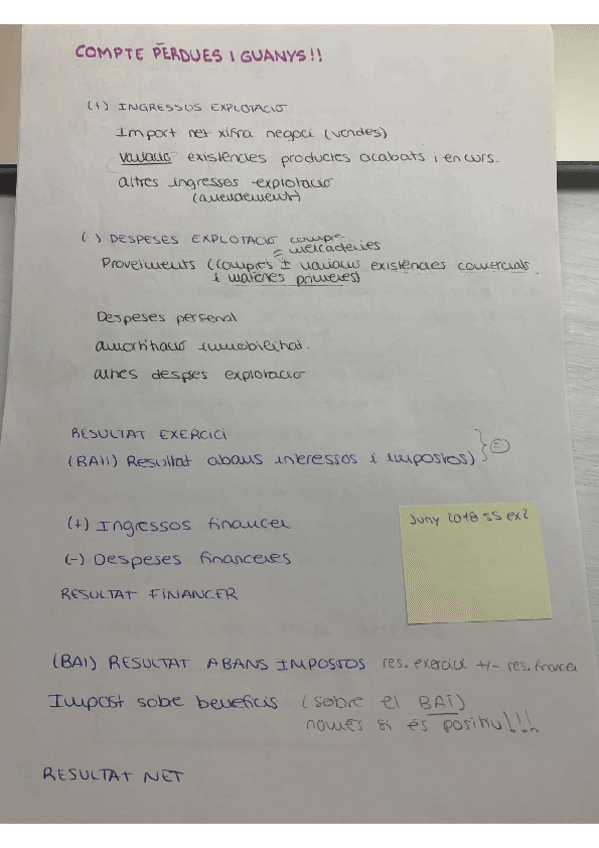 COMPTE PÈRDUES I GUANYS!!
(+) INGRESSOS EXPLOTACIÓ
Import net xifra negoci (vendes)
variació existències productes acabats i en curs.
altres ingressos explotació
(arrendament)
(-) DESPESES EXPLOTACIÓ compra
= mercaderies
Proveïments (compres ± variacions existències comercials
i matèries primeres)
Despeses personal
amortització immobilitzat.
altres despeses explotació
RESULTAT EXERCICI
(BAII) Resultat abans interessos i impostos) } =
(+) Ingressos financer
(-) Despeses financeres
Juny 2018 S5 ex2
RESULTAT FINANCER
(BAI) RESULTAT ABANS IMPOSTOS res. exercici +/- res. financer
Impost sobe beneficis (sobre el BAI)
només si és positiu!!!
RESULTAT NET